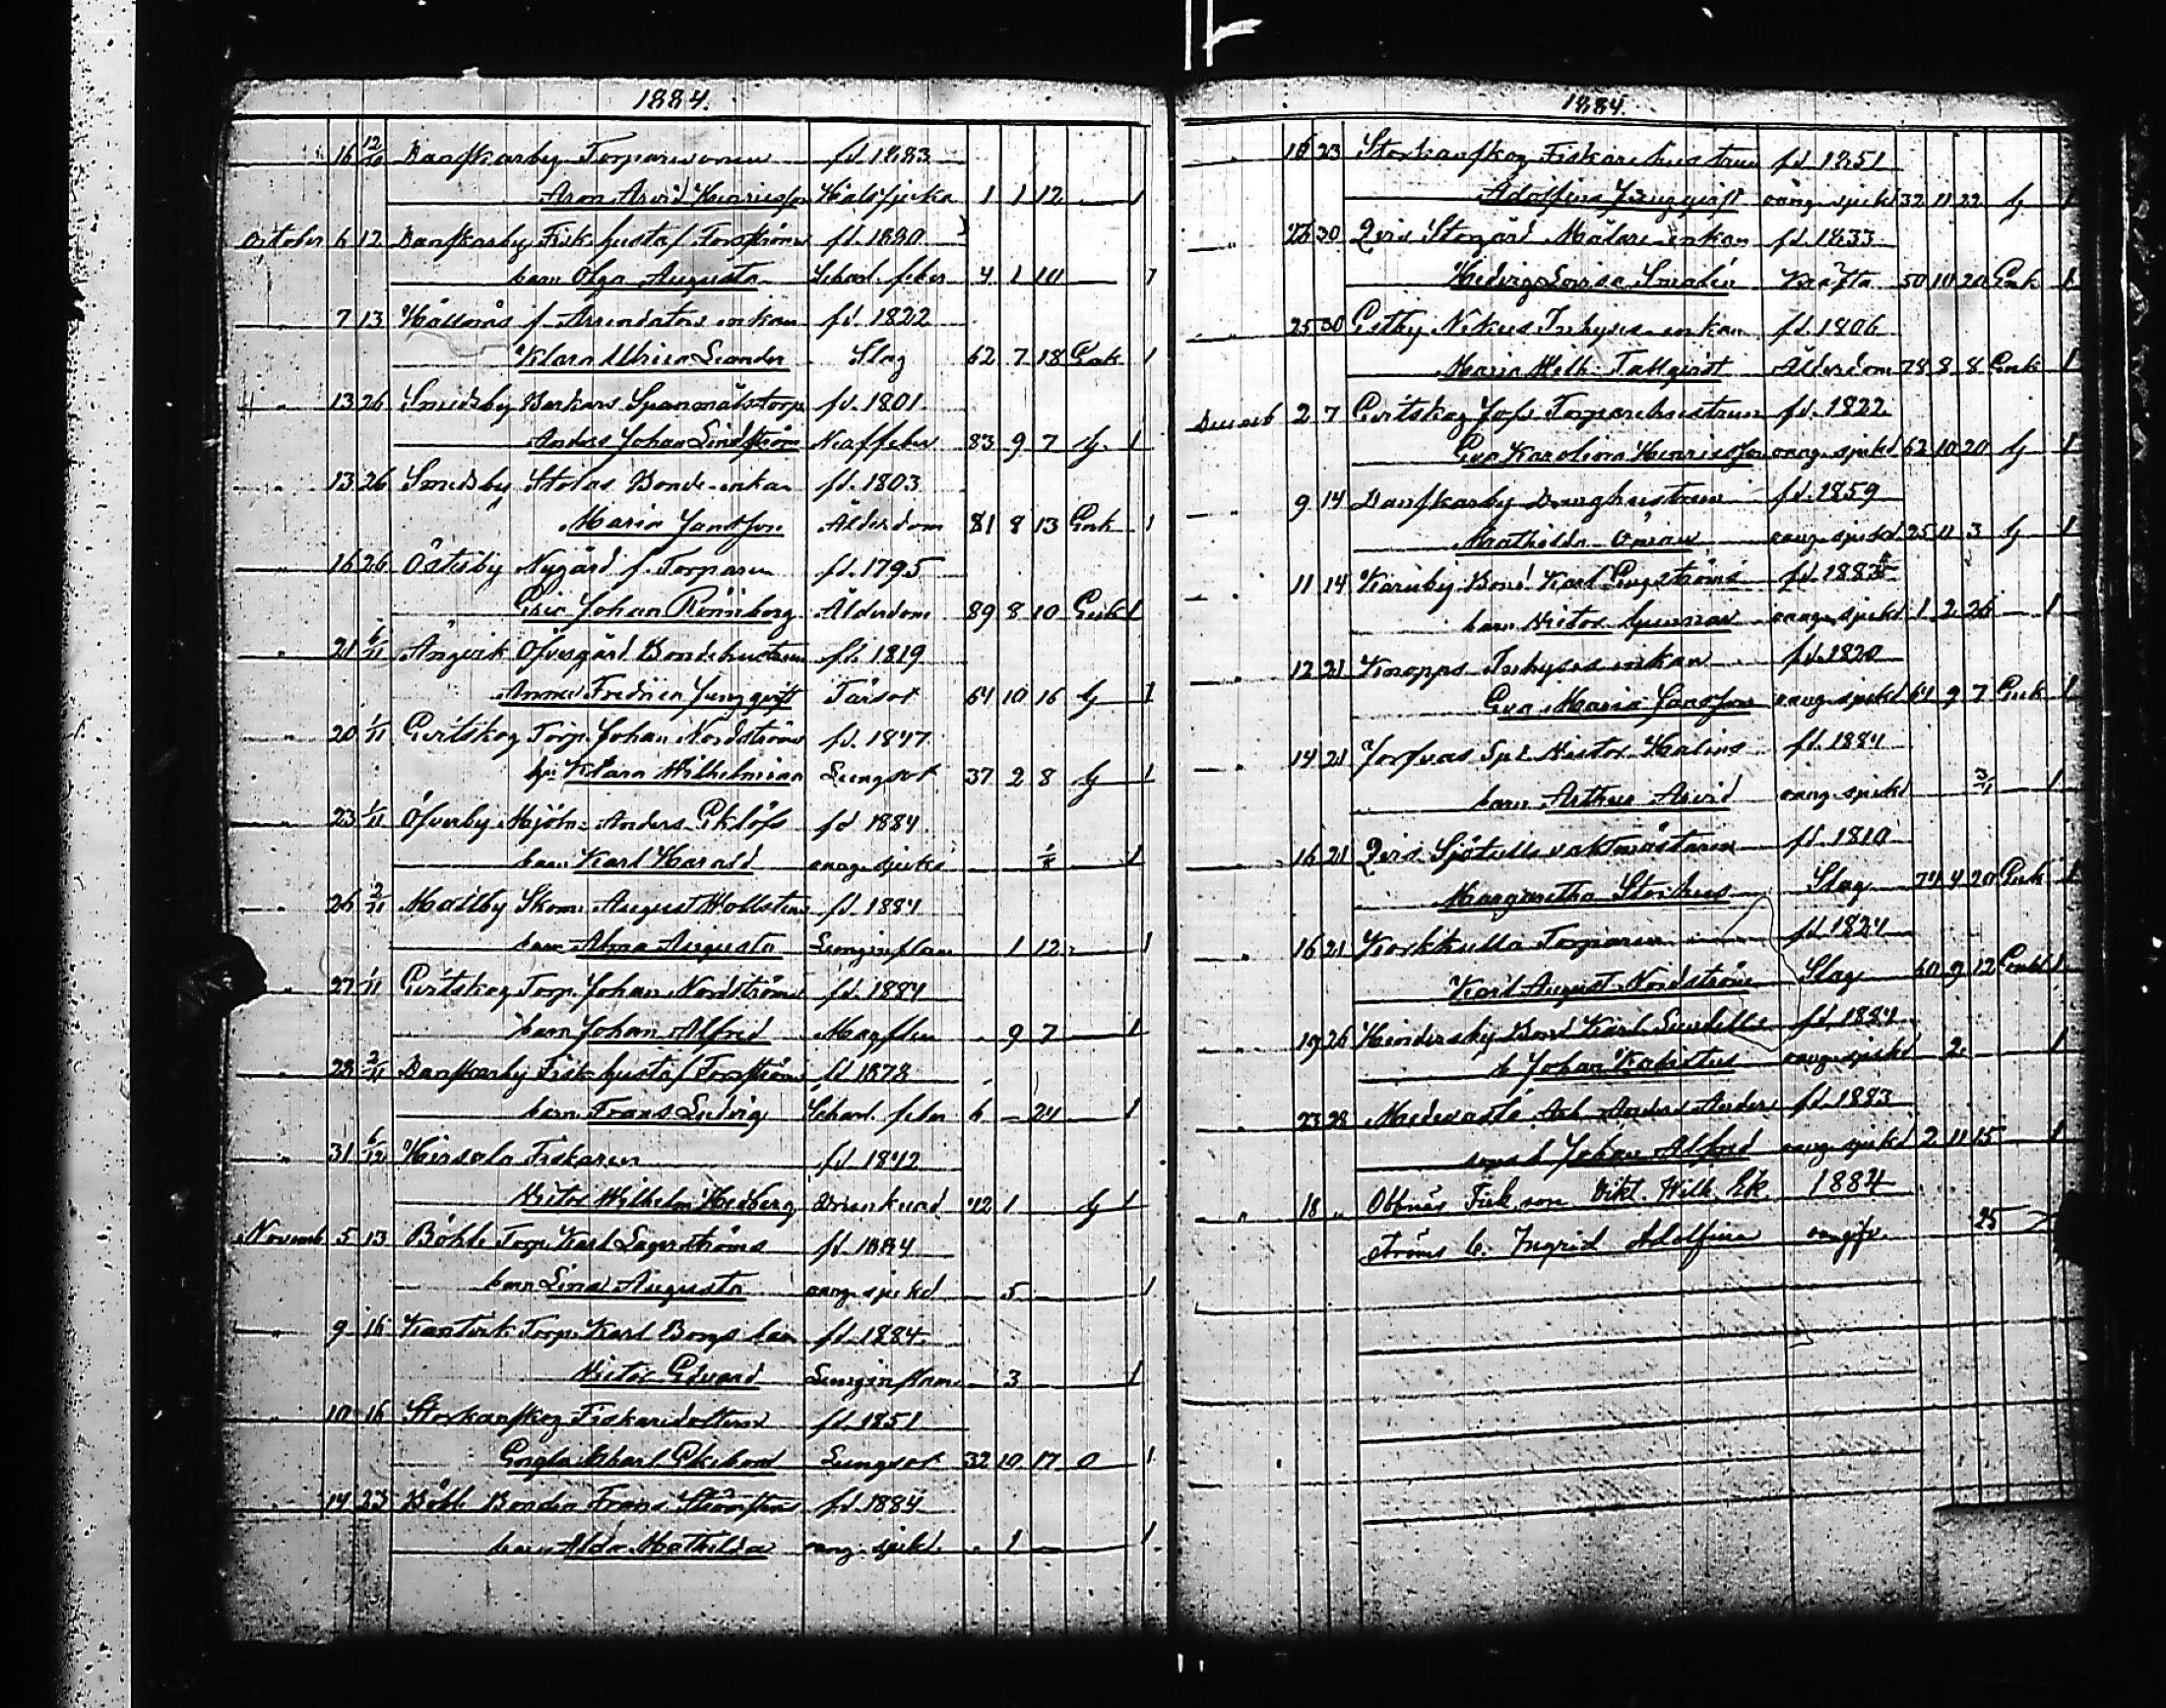 1884.
16 12/10 Danskarby Torparesonen fd. 1883
Aron Arvid Henriksson Halssjuka 1 1 12 — 1
October 6 12 Danskarby Fisk. Gustaf Forsströms fd. 1880
barn Olga Augusta Scharl. feber 4 1 10 — 1
" 7 13 Hällnäs f. Arrendators enkan fd. 1822
Klara Ulrica Leander Slag 62 7 18 Enk 1
" 13 26 Smedsby Backars Spanmålstorp. fd. 1801
Anders Johan Lindström 83 9 7 g. 1
" 13 26 Smedsby Stolas Bonde-enkan fd. 1803
Maria Jansson Ålderdom 81 8 13 Enk 1
" 16 26 Österby Nygård f. Torparen fd. 1795
Eric Johan Rönnberg Ålderdom 89 8 10 Enk 1
" 21 6/11 Ängvik Öfvergård Bondehustrun fd. 1819
Anna Fredrica Ljungqvist Tärsot 64 10 16 g 1
" 20 1/11 Evitskog Torp. Johan Nordströms fd. 1847
hu Klara Wilhelmina Lungsot 37 2 8 g 1
" 23 1/11 Öfverby Mjöln. Anders Eklöfs fd 1884
barn Karl Harald oang. sjukd — — 1
" 26 2/11 Masby Skom. August Hollstens fd. 1884
barn Alma Augusta Lunginflam 1 12 1
" 27 1/11 Evitskog Torp. Johan Nordströms fd. 1884
barn Johan Alfred Magflen 9 7 — 1
" 28 2/11 Danskarby Fisk. Gustaf Forsströms fd. 1878
barn Frans Ludvig Scharl. feber 6 — 24 1
" 31 6/12 Hirsala Fiskaren fd. 1842
Victor Wilhelm Hedberg Drunknad 42 1 g 1
Novemb 5 13 Böhle Torp. Karl Lagerströms fd. 1884
barn Lina Augusta oang. sjukd — 5 — 1
" 9 16 Kantvik Torp. Karl Borgs barn fd. 1884.
Victor Edvard Lunginflam — 3 — 1
" 10 16 Storkanskog Fiskaredottern fd. 1851
Engla Charl. Ekebom Lungsot 32 10 17 O 1
" 14 23 Böhle Bonden Frans fd. 1884
barn Alda Mathilda oang. sjukd. — 1 — 1
1884.
" 16 23 Storkanskog Fiskarehustrun fd. 1851
Adolfina Ljungqvist oang. sjukd 32 11 22 g 1
" 26 30 Qvis Storgård Målare-enkan fd. 1833
Hedvig Lovisa Smalén Kräfta 50 10 20 Enk 1
" 25 30 Estby Nikus Inhyses-enkan fd. 1806
Maria Wilh. Tallqvist Ålderdom 78 8 8 Enk 1
Decemb 2 7 Evitskog Torparehustrun fd. 1822
Eva Karolina Henriksson oang. sjukd 62 10 20 g 1
" 9 14 Danskarby Drenghustrun fd. 1859
Mathilda Öman oang. sjukd 25 11 3 g 1
" 11 14 Karuby Bond. Karl Engströms fd. 1883
barn Victor Gunnar oang. sjukd 1 2 26 — 1
" 12 21 Knapps Inhyses enkan fd. 1820
Eva Maria Jansson oang. sjukd 64 9 7 Enk 1
" 14 21 Jorfvas Victor Malins fd. 1884
barn Arthur Arvid oang. sjukd 3/1 — 1
" 16 21 Qvis Sjötulls vaktmästaren fd. 1810
Margaretha Slag 74 4 20 Enk 1
" 16 21 Korkkulla Torparen fd. 1824
Karl August Nordström Slag 60 9 12 Enkl 1
" 19 26 Hindersby Bond Karl Sundells fd. 1884
b Johan Kalixtus oang. sjukd — 2 — 1
" 23 28 Medvastö Arb. Anders Anders- fd. 1883
sons b Johan Alfred oang. sjukd 2 11 15 1
" 18 " Obbnäs Fisk. son. Vikt. Wilh. Ek- 1884
ströms b. Ingrid Adolfina oangifv. 25